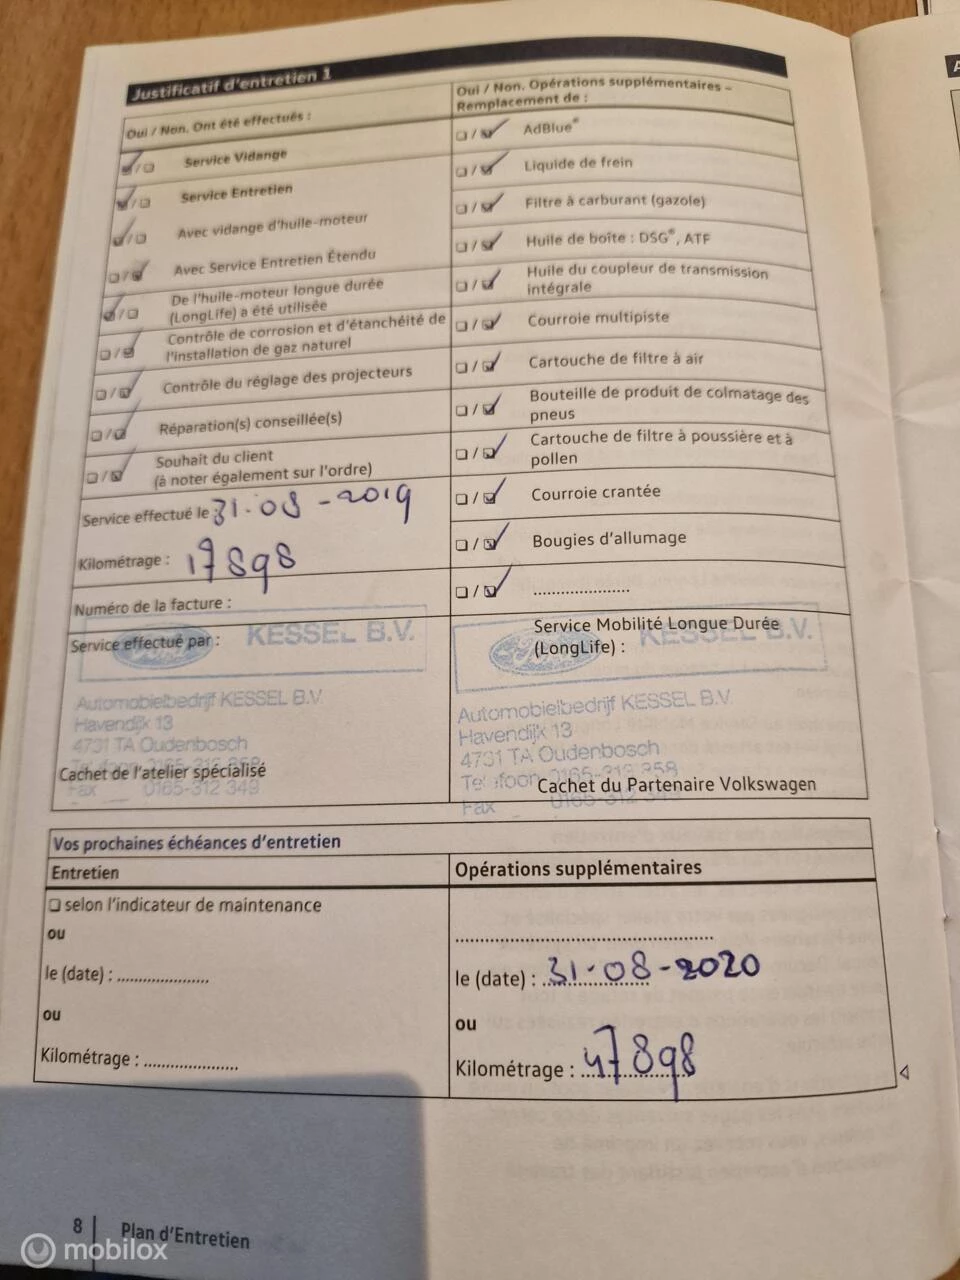 Justificatif d'entretien 1
Oui / Non. Ont été effectués :
☑/❏ Service Vidange
☑/❏ Service Entretien
☑/❏ Avec vidange d'huile-moteur
❏/☑ Avec Service Entretien Étendu
☑/❏ De l'huile-moteur longue durée
(LongLife) a été utilisée
❏/☑ Contrôle de corrosion et d'étanchéité de
l'installation de gaz naturel
❏/☑ Contrôle du réglage des projecteurs
❏/☑ Réparation(s) conseillée(s)
❏/☑ Souhait du client
(à noter également sur l'ordre)
Service effectué le : 31-08-2019
Kilométrage : 17898
Numéro de la facture :
Service effectué par :
KESSEL B.V.
Automobielbedrijf KESSEL B.V.
Havendijk 13
4731 TA Oudenbosch
Fax 0165-312 349
Cachet de l'atelier spécialisé
Oui / Non. Opérations supplémentaires –
Remplacement de :
❏/☑ AdBlue®
❏/☑ Liquide de frein
❏/☑ Filtre à carburant (gazole)
❏/☑ Huile de boîte : DSG®, ATF
❏/☑ Huile du coupleur de transmission
intégrale
❏/☑ Courroie multipiste
❏/☑ Cartouche de filtre à air
❏/☑ Bouteille de produit de colmatage des
pneus
❏/☑ Cartouche de filtre à poussière et à
pollen
❏/☑ Courroie crantée
❏/☑ Bougies d'allumage
❏/☑ .....................
Service Mobilité Longue Durée
(LongLife) :
KESSEL B.V.
Automobielbedrijf KESSEL B.V.
Havendijk 13
4731 TA Oudenbosch
Fax
Cachet du Partenaire Volkswagen
Vos prochaines échéances d'entretien
Entretien
❏ selon l'indicateur de maintenance
ou
le (date) : .....................
ou
Kilométrage : .....................
Opérations supplémentaires
.....................
le (date) : 31-08-2020
ou
Kilométrage : 47898
8 Plan d'Entretien
mobilox